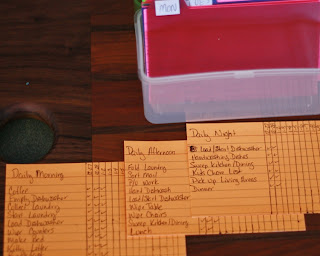 MON
Daily Morning
Coffee
Empty Dishwasher
Collect Laundry
Start Laundry
Load Dishwasher
Wipe Counters
Make Bed
Kitty Litter
Daily Afternoon
Fold Laundry
Sort Mail
P/U Work
Load/Start Dishwasher
Wipe Table
Wipe Chairs
Sweep Kitchen/Dining
Lunch
Daily Night
Load/Start Dishwasher
Handwashing Dishes
Sweep Kitchen/Dining
Kids Chore List
Pick Up Living Rooms
Dinner